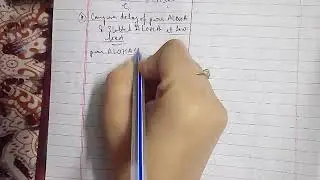 Compare delay of pure ALOHA
& Slotted ALOHA at low
load
pure ALOHA